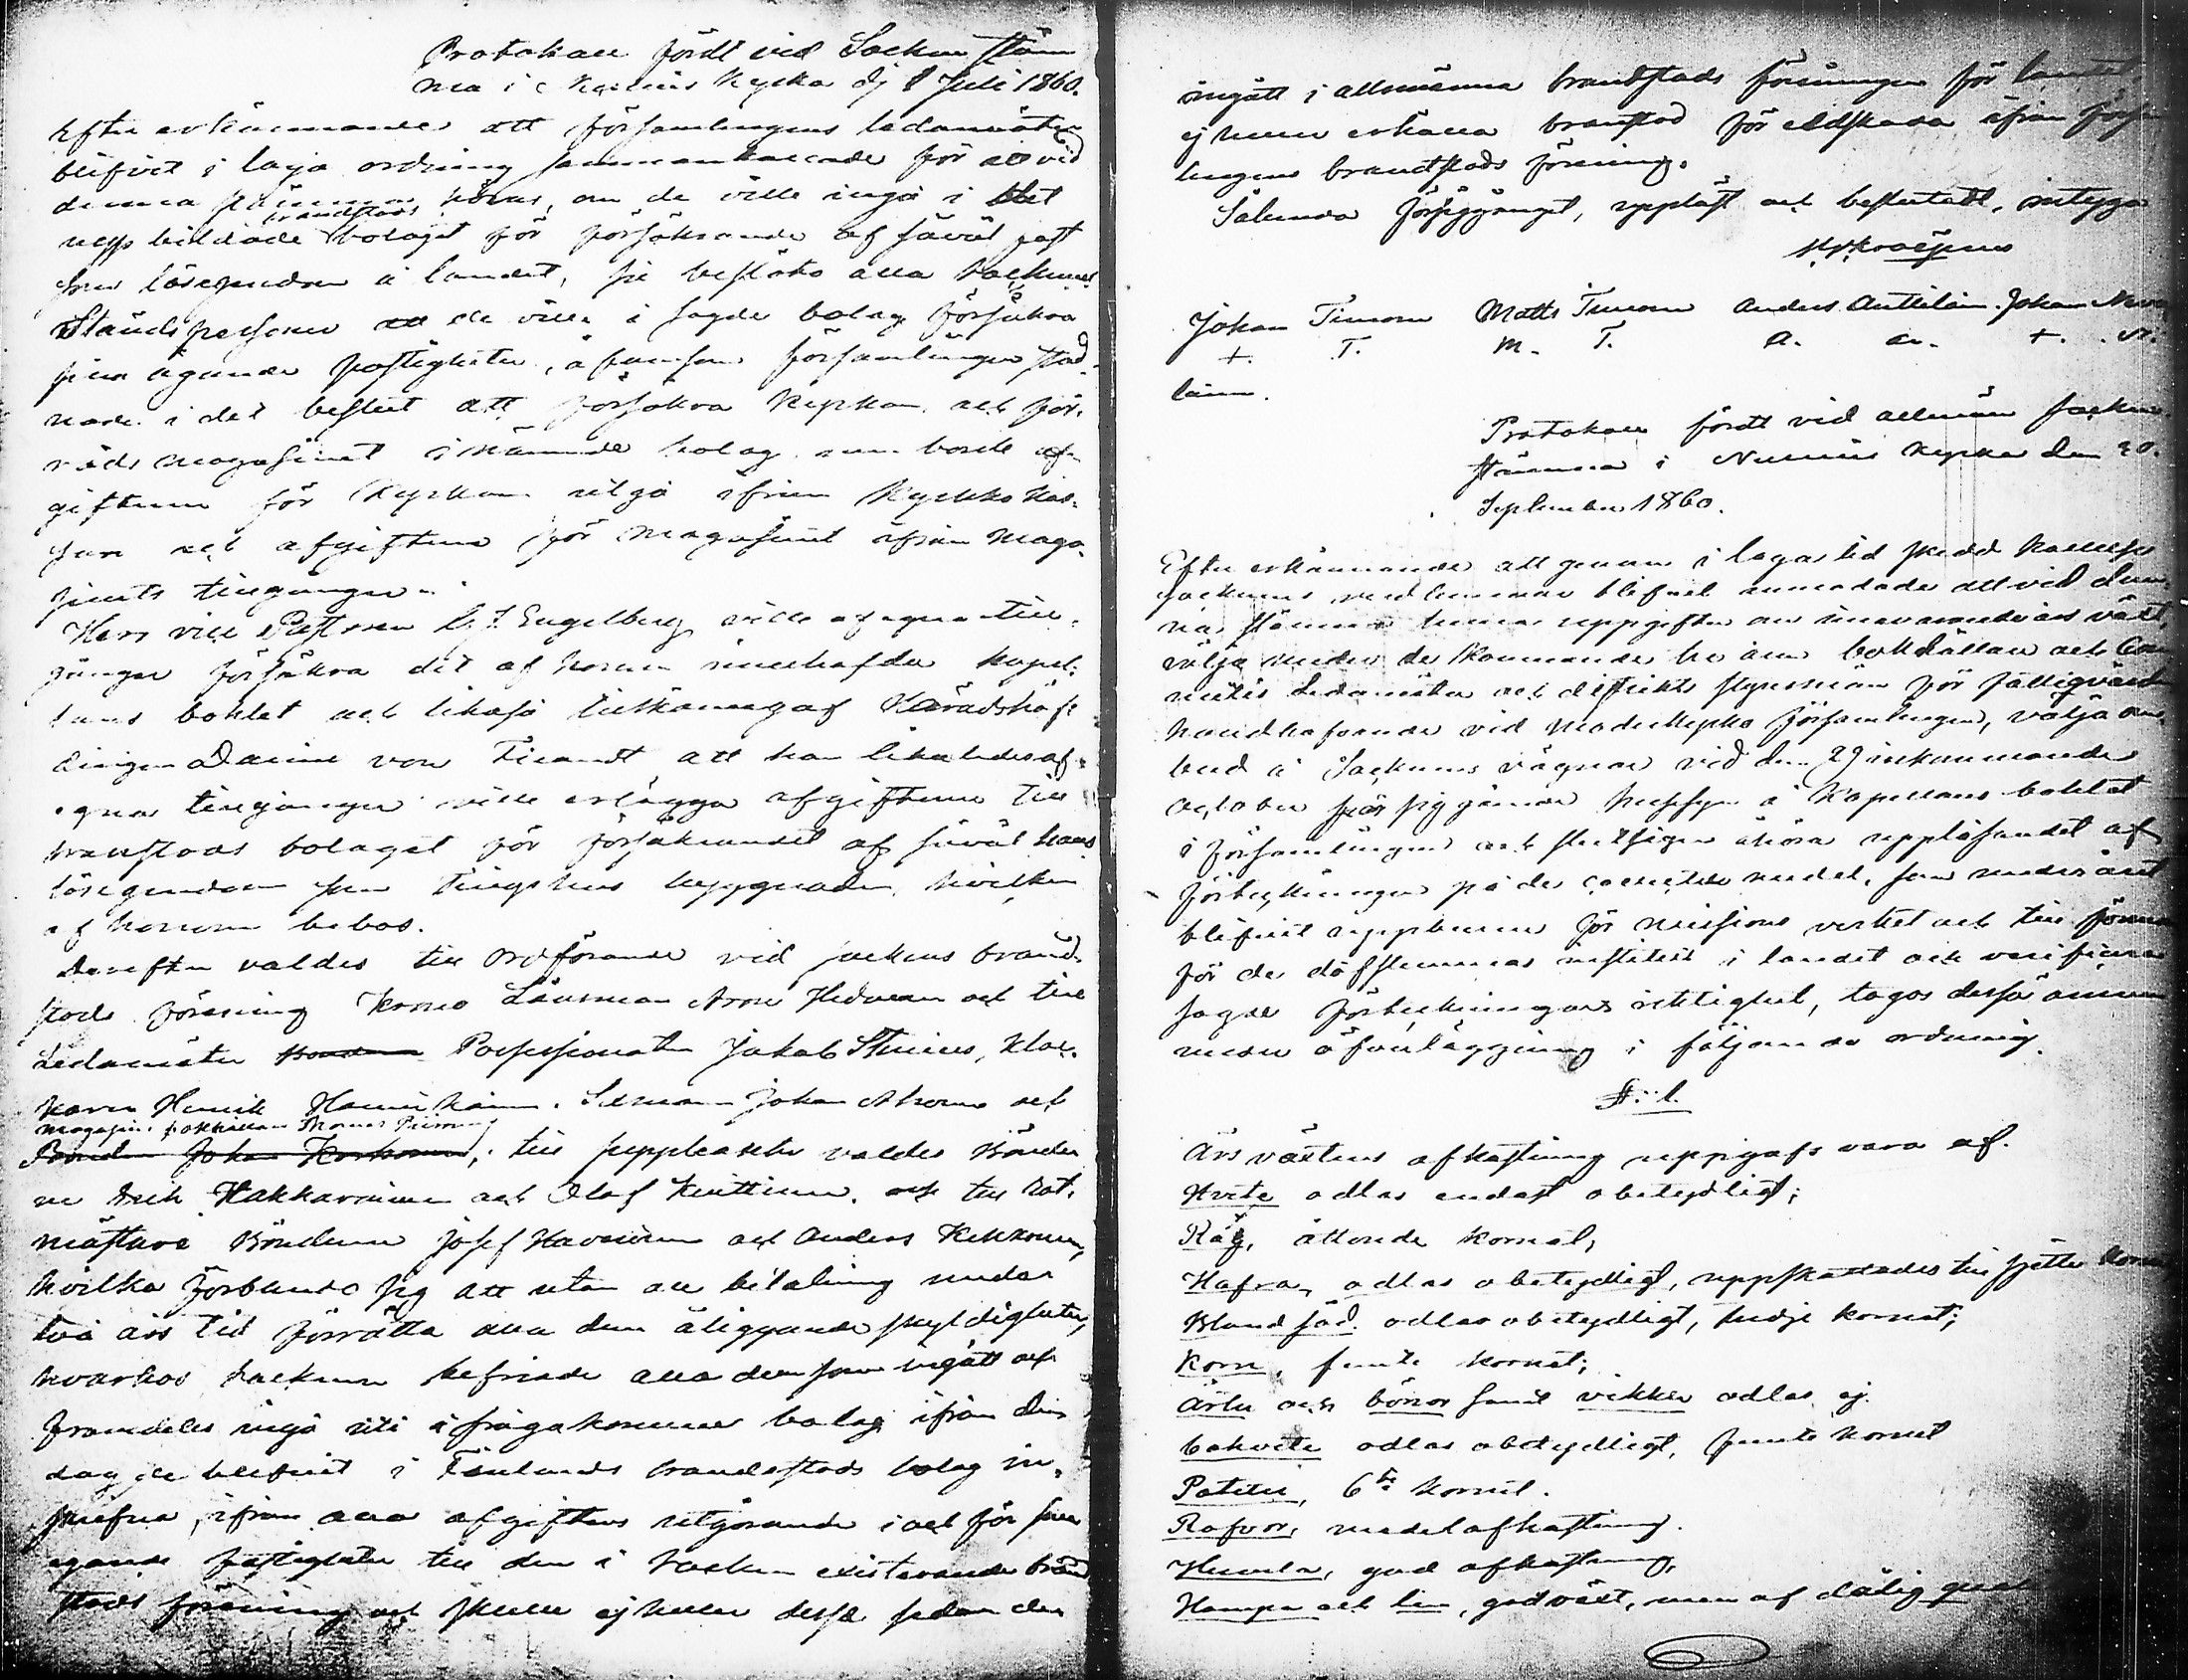 Protokoll fördt vid Sockne stäm
ma i Kyrka d. 8 Juli 1860.
Efter erkännande att församlingens ledamöter
blifvit i laga ordning sammankallade för att vid
denna stämma höras, om de ville ingå i det
brandstods
nyss bildade bolaget för försäkrande af såväl fast
som lösegendom å landet, så beslöto alla Socknens
Ståndspersoner att de ville i sagde bolag försäkra
sina egande fastigheter, äfvensom församlingen stad-
nade i det beslut att försäkra Kyrkan och för-
råds magasinet i nämnde bolag, men borde af-
giftern för Kyrkan utgå ifrån Kyrkokas-
san och afgifterne för Magasinet ifrån Maga-
sinets tillgångar.
Herr vice Pastoren Engelberg ville af egna till-
gångar försäkra det af honom innehafda kapel-
lans bohlet och likaså tillkännagaf Häradshöf-
dingen von Fieandt att han likaledes af
egna tillgångar ville erlägga afgifterne till
brandstods bolaget för försäkrandet af såväl hans
lösegendom som Tingshus byggnaden, hvilken
af honom bebos.
Derefter valdes till Ordförande vid sockens brand-
stods förening Krono Länsman Aron Hedman och till
Ledamöter Possessionaten Jakob Stenius, Kloc-
karen Henrik . Johan och
Magasins bokhållaren Thomas
Bonden Johan Korhonen, till suppleanter valdes Bönder-
ne Erik Hakkarainen och Olof Kinttinen, och till Rot-
mästare Bönderne Josef och Anders Kekkonen,
hvilka förbundo sig att utan all betalning under
två års tid förrätta alla dem åliggande skyldigheter,
hvarhos Socknen befriade alla dem som ingått och
framdeles ingå uti ifrågakomne bolag ifrån den
dag de blifvit i Finlands brandstods bolag in-
skrifne, ifrån alla afgifters utgörande i och för sina
egande fastigheter till den i Socknen existerande brand
stods förening och skulle ej heller desse sedan de
ingått i allmänna brandstods föreningen för landet
ej heller erhålla branstod för eldskada ifrån försam
lingens brandstods förening.
Sålunda försiggånget, uppläst och beslutadt, intyga

Johan Timonen Matts Timonen Anders Anttilain. Johan
+. T. M. T. A. A. +. N.
lainen.
Protokoll fördt vid allmän Sockne
stämma i Nurmis Kyrka den 30.
September 1860.
Efter erkännande att genom i laga tid skedd kallelse
socknens medlemmar blifvit anmodade att vid den-
na stämma lemna uppgifter om innevarande års växt,
välja under de kommande tre åren bokhållare och Com
mités Ledamöter och distrikts styresmän för fattigvården
handhafvande vid Moderkyrko församlingen, välja om-
bud å Socknens vägnar vid den 29 instkommande
October för sig gående husesyn å Kapellans bohlet
i församlingen och slutligen åhöra uppläsandet af
förteckningen på de collekte medel, som under året
blifvit uppburne för missions verket och till förmån
för de döfstummas institut i landet och verifiera
sagde förtecknings riktighet, togos desse ämnen
under öfverläggning i följande ordning.
§. 1.
Års växtens afkastning uppgafs vara af.
Hvete odlas endast obetydligt;
Råg, åttonde kornet;
Hafra, odlas obetydligt, uppskattades till sjette korn
Bland säd. odlas obetydligt, tredje kornet;
Korn, femte kornet;
Ärter och bönor samt vikker odlas ej.
bohvete odlas obetydligt, femte kornet
Potäter, 6te kornet.
Rofvor, medelafkastning.
Humla, god afkastning.
Hampa och lin, god växt, men af dålig